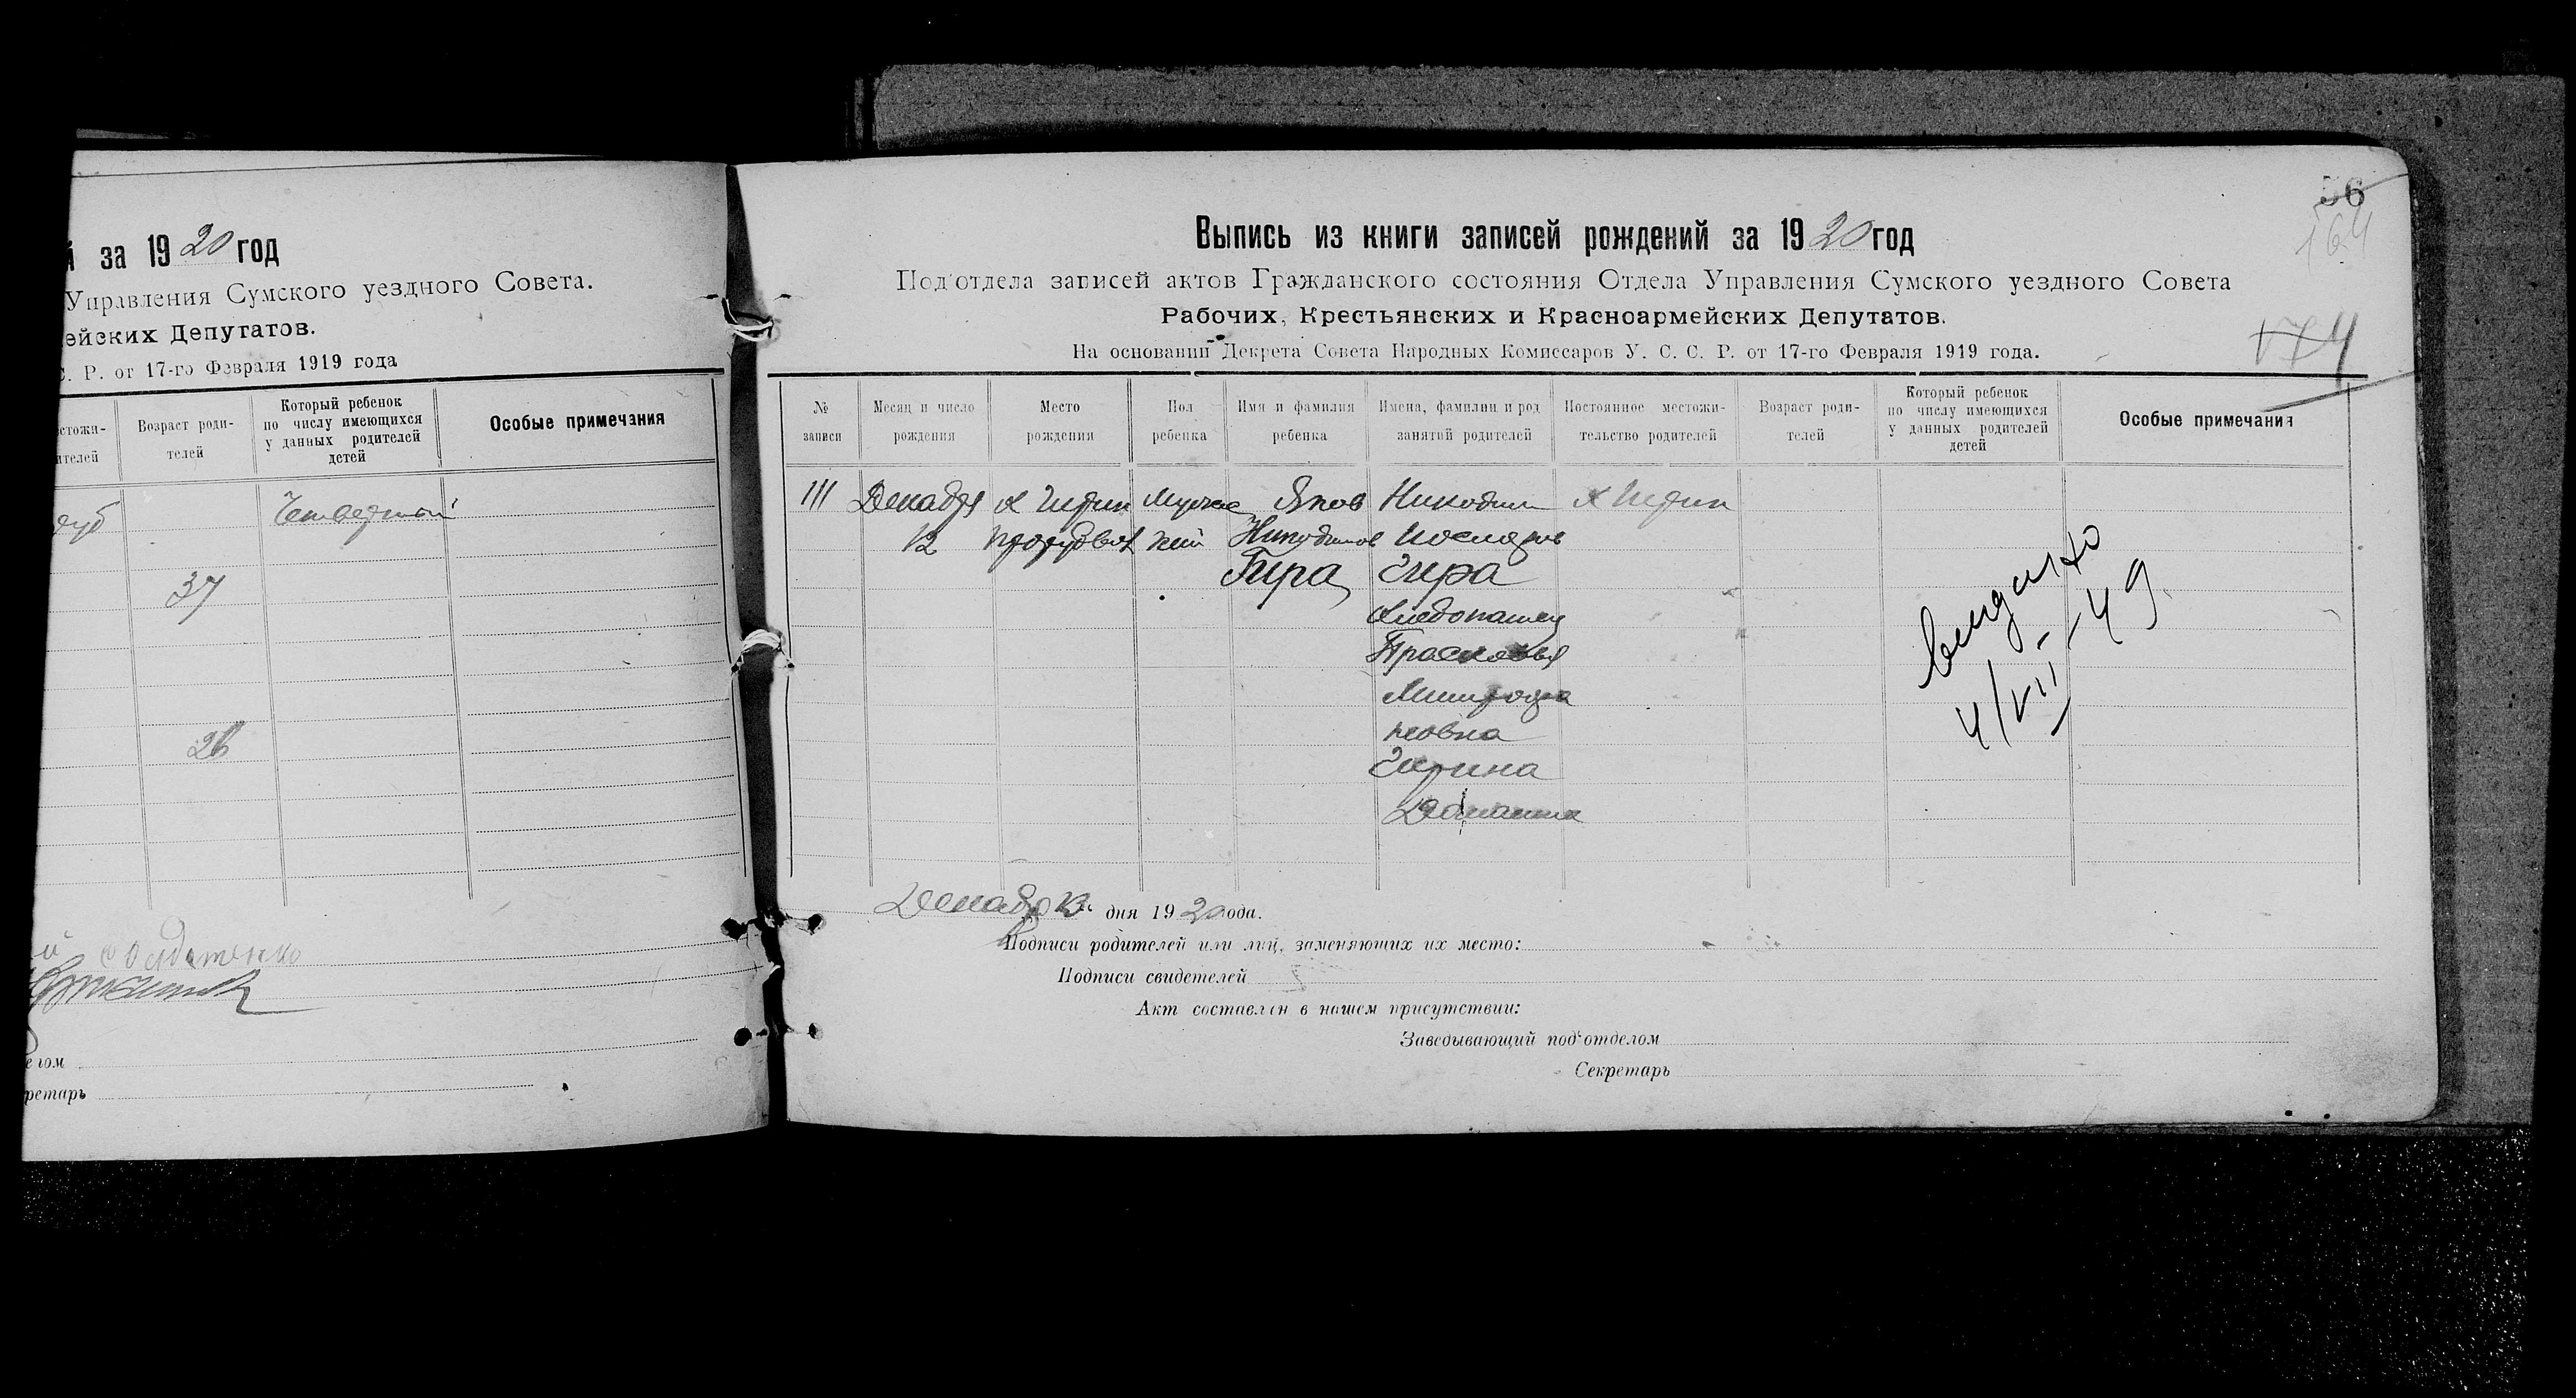 й за 1920 год
Управления Сумского уездного Совета.
ейских Депутатов.
С. Р. от 17-го Февраля 1919 года
стожи-
ителей
Возраст роди-
телей
Который ребенок
по числу имеющихся
у данных родителей
детей
Особые примечания
37
26
етом
ретарь
56
164
174
Выпись из книги записей рождений за 1920 год
Под'отдела записей актов Гражданского состояния Отдела Управления Сумского уездного Совета
Рабочих, Крестьянских и Красноармейских Депутатов.
На основании Декрета Совета Народных Комиссаров У. С. С. Р. от 17-го Февраля 1919 года.
№
записи
Месяц и число
рождения
Место
рождения
Пол
ребенка
Имя и фамилия
ребенка
Имена, фамилии и род
занятий родителей
Постоянное местожи-
тельство родителей
Возраст роди-
телей
Который ребенок
по числу имеющихся
у данных родителей
детей
Особые примечания
111
Декабря
12
Мужс
кий
Яков
Никодимов
Гира
Никодим
Гира
Хлебопашец
Прасковья
Гирина
4/VII-49
Декабря 13 дня 1920 года.
Подписи родителей или лиц, заменяющих их место:
Подписи свидетелей
Акт составлен в нашем присутствии:
Заведывающий под'отделом
Секретарь